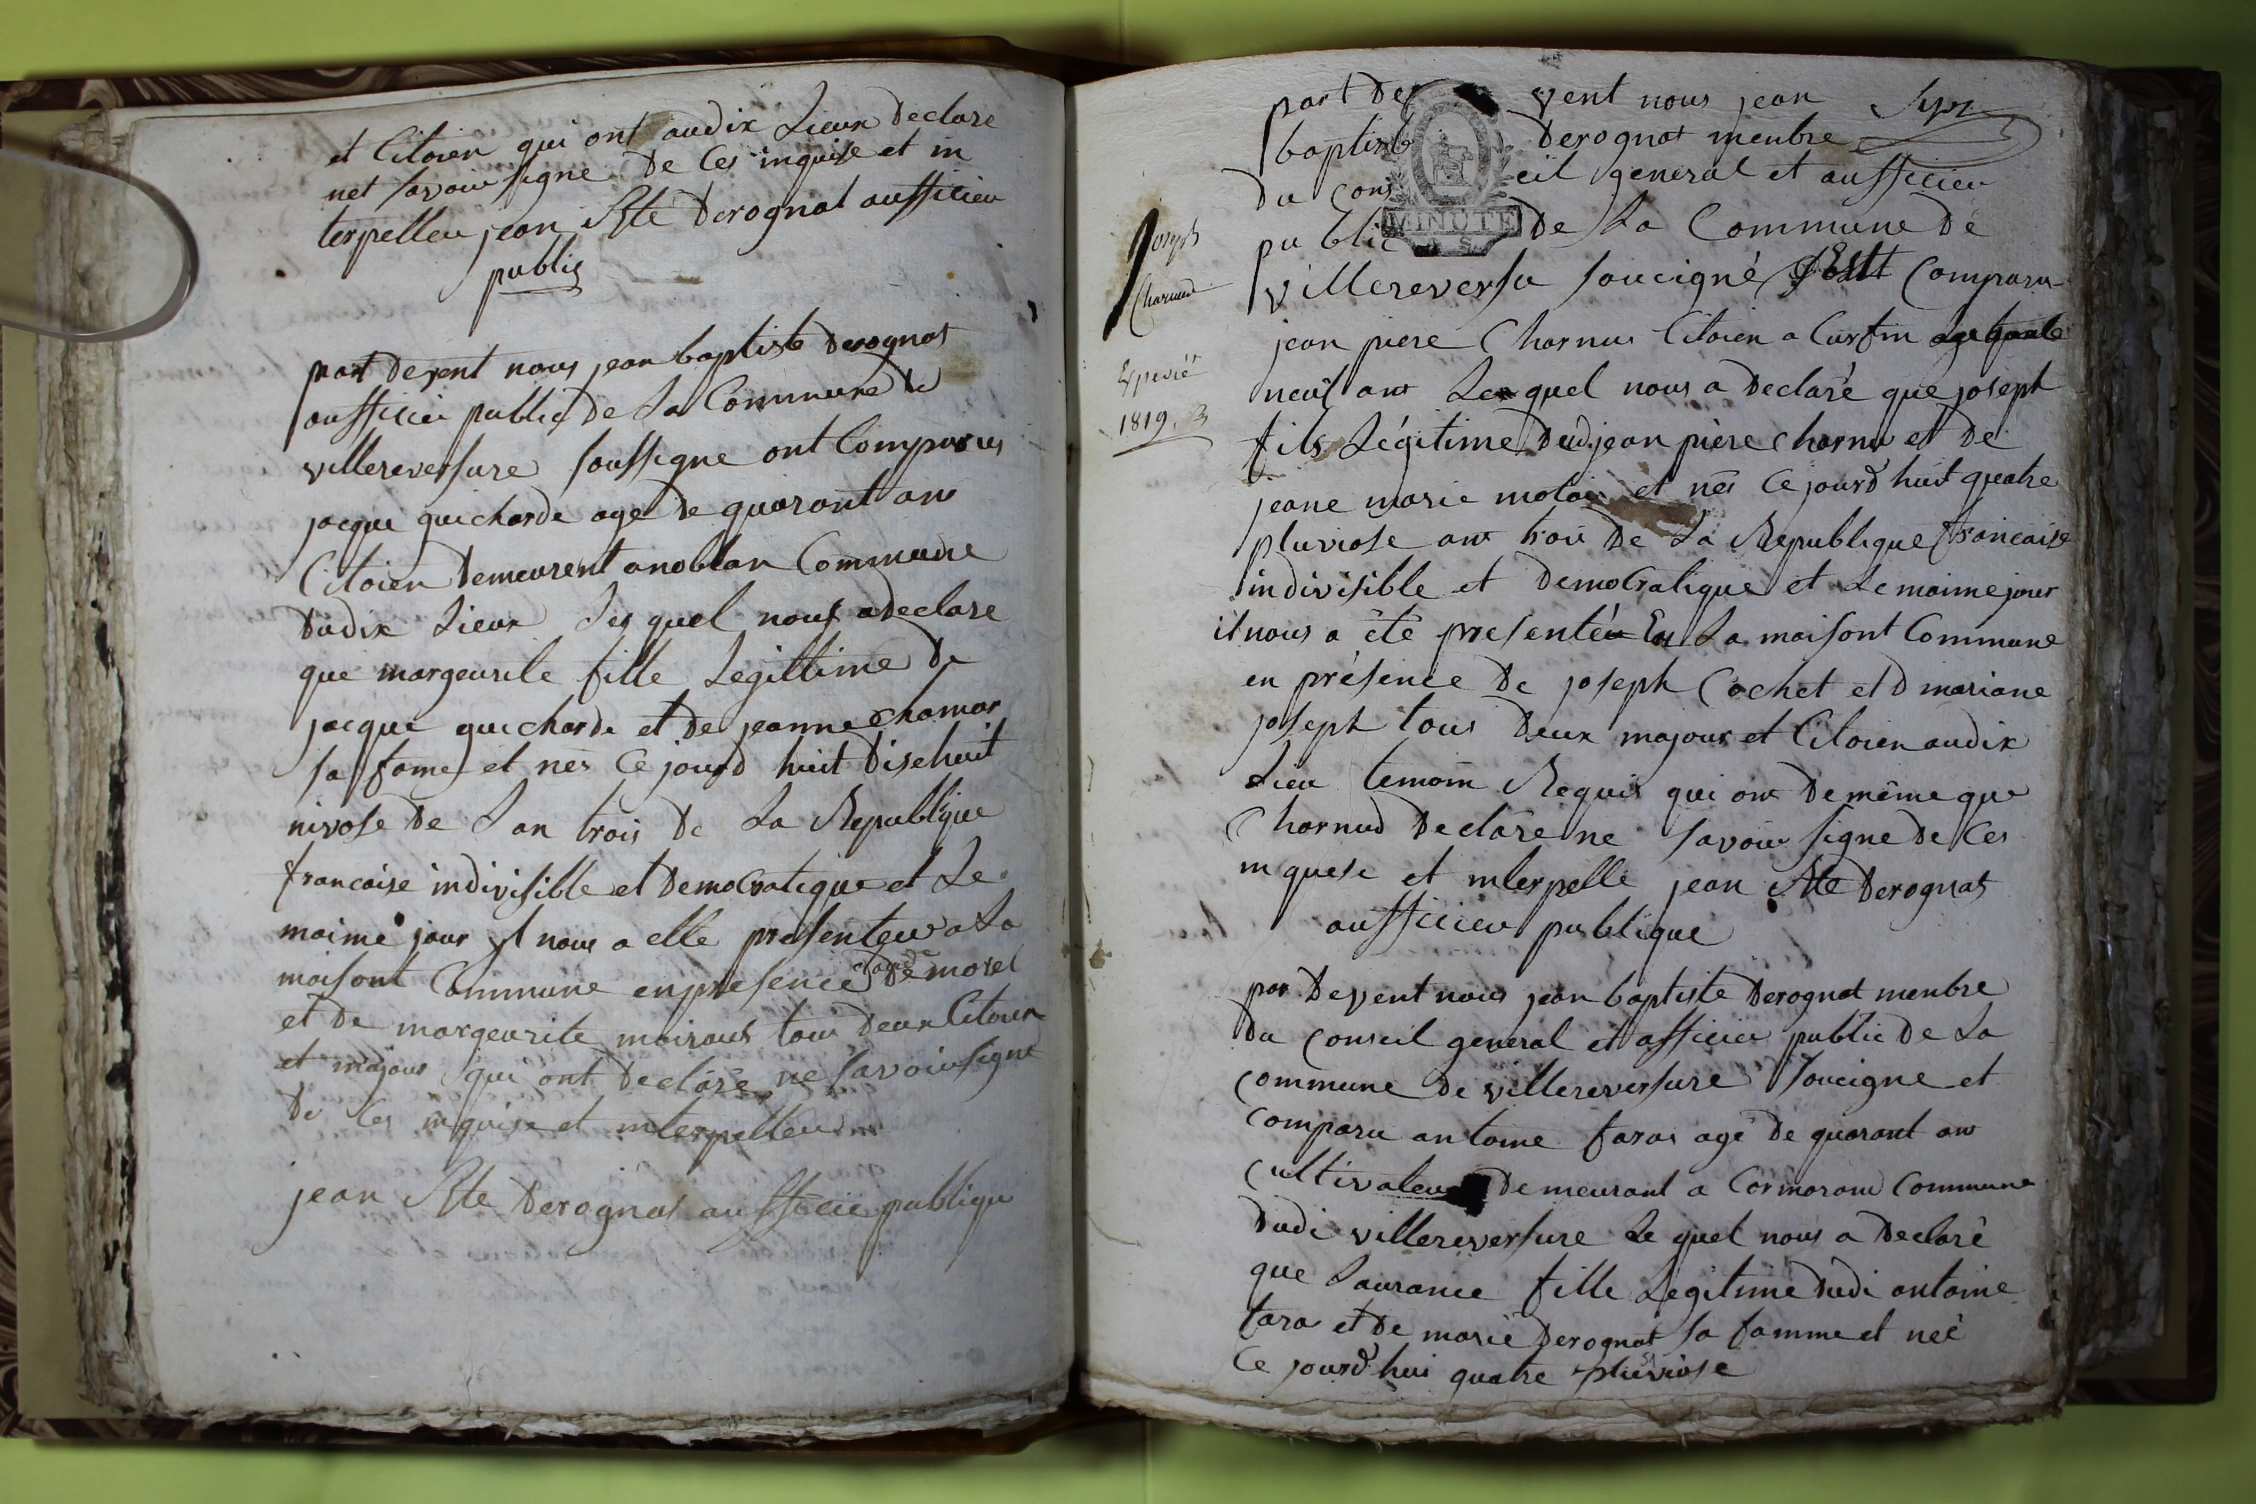 et Citoien qui ont audix Lieux declare
net savoir signe de Ces inquise et in
terpelleu jean Bte Derognat aufficieu
public
part devent nous jean baptiste Derognat
aufficie public de La Commune de
villereversure soussigne ont Comparus
jacque guicharde age de quarant ans
Citoien demeurent anoblan Commune
dudix Lieux Les quel nous a declare
que margeurite fille Legittime de
jacque guicharde et de jeanne chamar
sa fame et nes Ce jourd huit disehuit
nivose de Lan trois de La Republique
francaise indivisible et democratique et Le
maime jour yl nous a elle presenteu a La
maisont Commune en presence claude morel
et de margeurite moiraus tous deux Citoien
et majour qui ont declare ne savoir signe
de Ces inquise et interpelleu
jean Bte Derognat aufficie publique
part de vent nous jean
baptiste Derognat menbre
du conseil general et aufficieu
public de La Commune de
MINUTE
villereversu soucigné Est Comparu
jean piere Charnu Citoien a Cursin age
neuf ans Lequel nous a declaré que joseph
fils Légitime dud. jean piere charnu et de
jeane marie et nés Ce jourd huit quatre
pluviose ans trois de La Republique francaise
indivisible et democratique et Le maime jour
il nous a été presenté En La maisont Commune
en présence de joseph Cochet et d mariane
joseph tous deux majour et Citoien audix
Lieu temoin Requis qui ont de même que
Charnud declare ne savoir signe de Ces
inquese et interpelle jean Bte Derognat
aufficieu publique
Joseph
Charnud
Expedié
1819
par devent nous jean baptiste Derognat menbre
du conseil general et afficier public de La
commune de villereversure soucigne et
comparu antoine faras agé de quarant ans
cultivateur demeurant a Cormorand Commune
dudi villereversure Le quel nous a declaré
que Laurance fille Legitime dudi antoine
fara et de marie Derognat sa famme et neé
Ce jourd'hui quatre pluviose